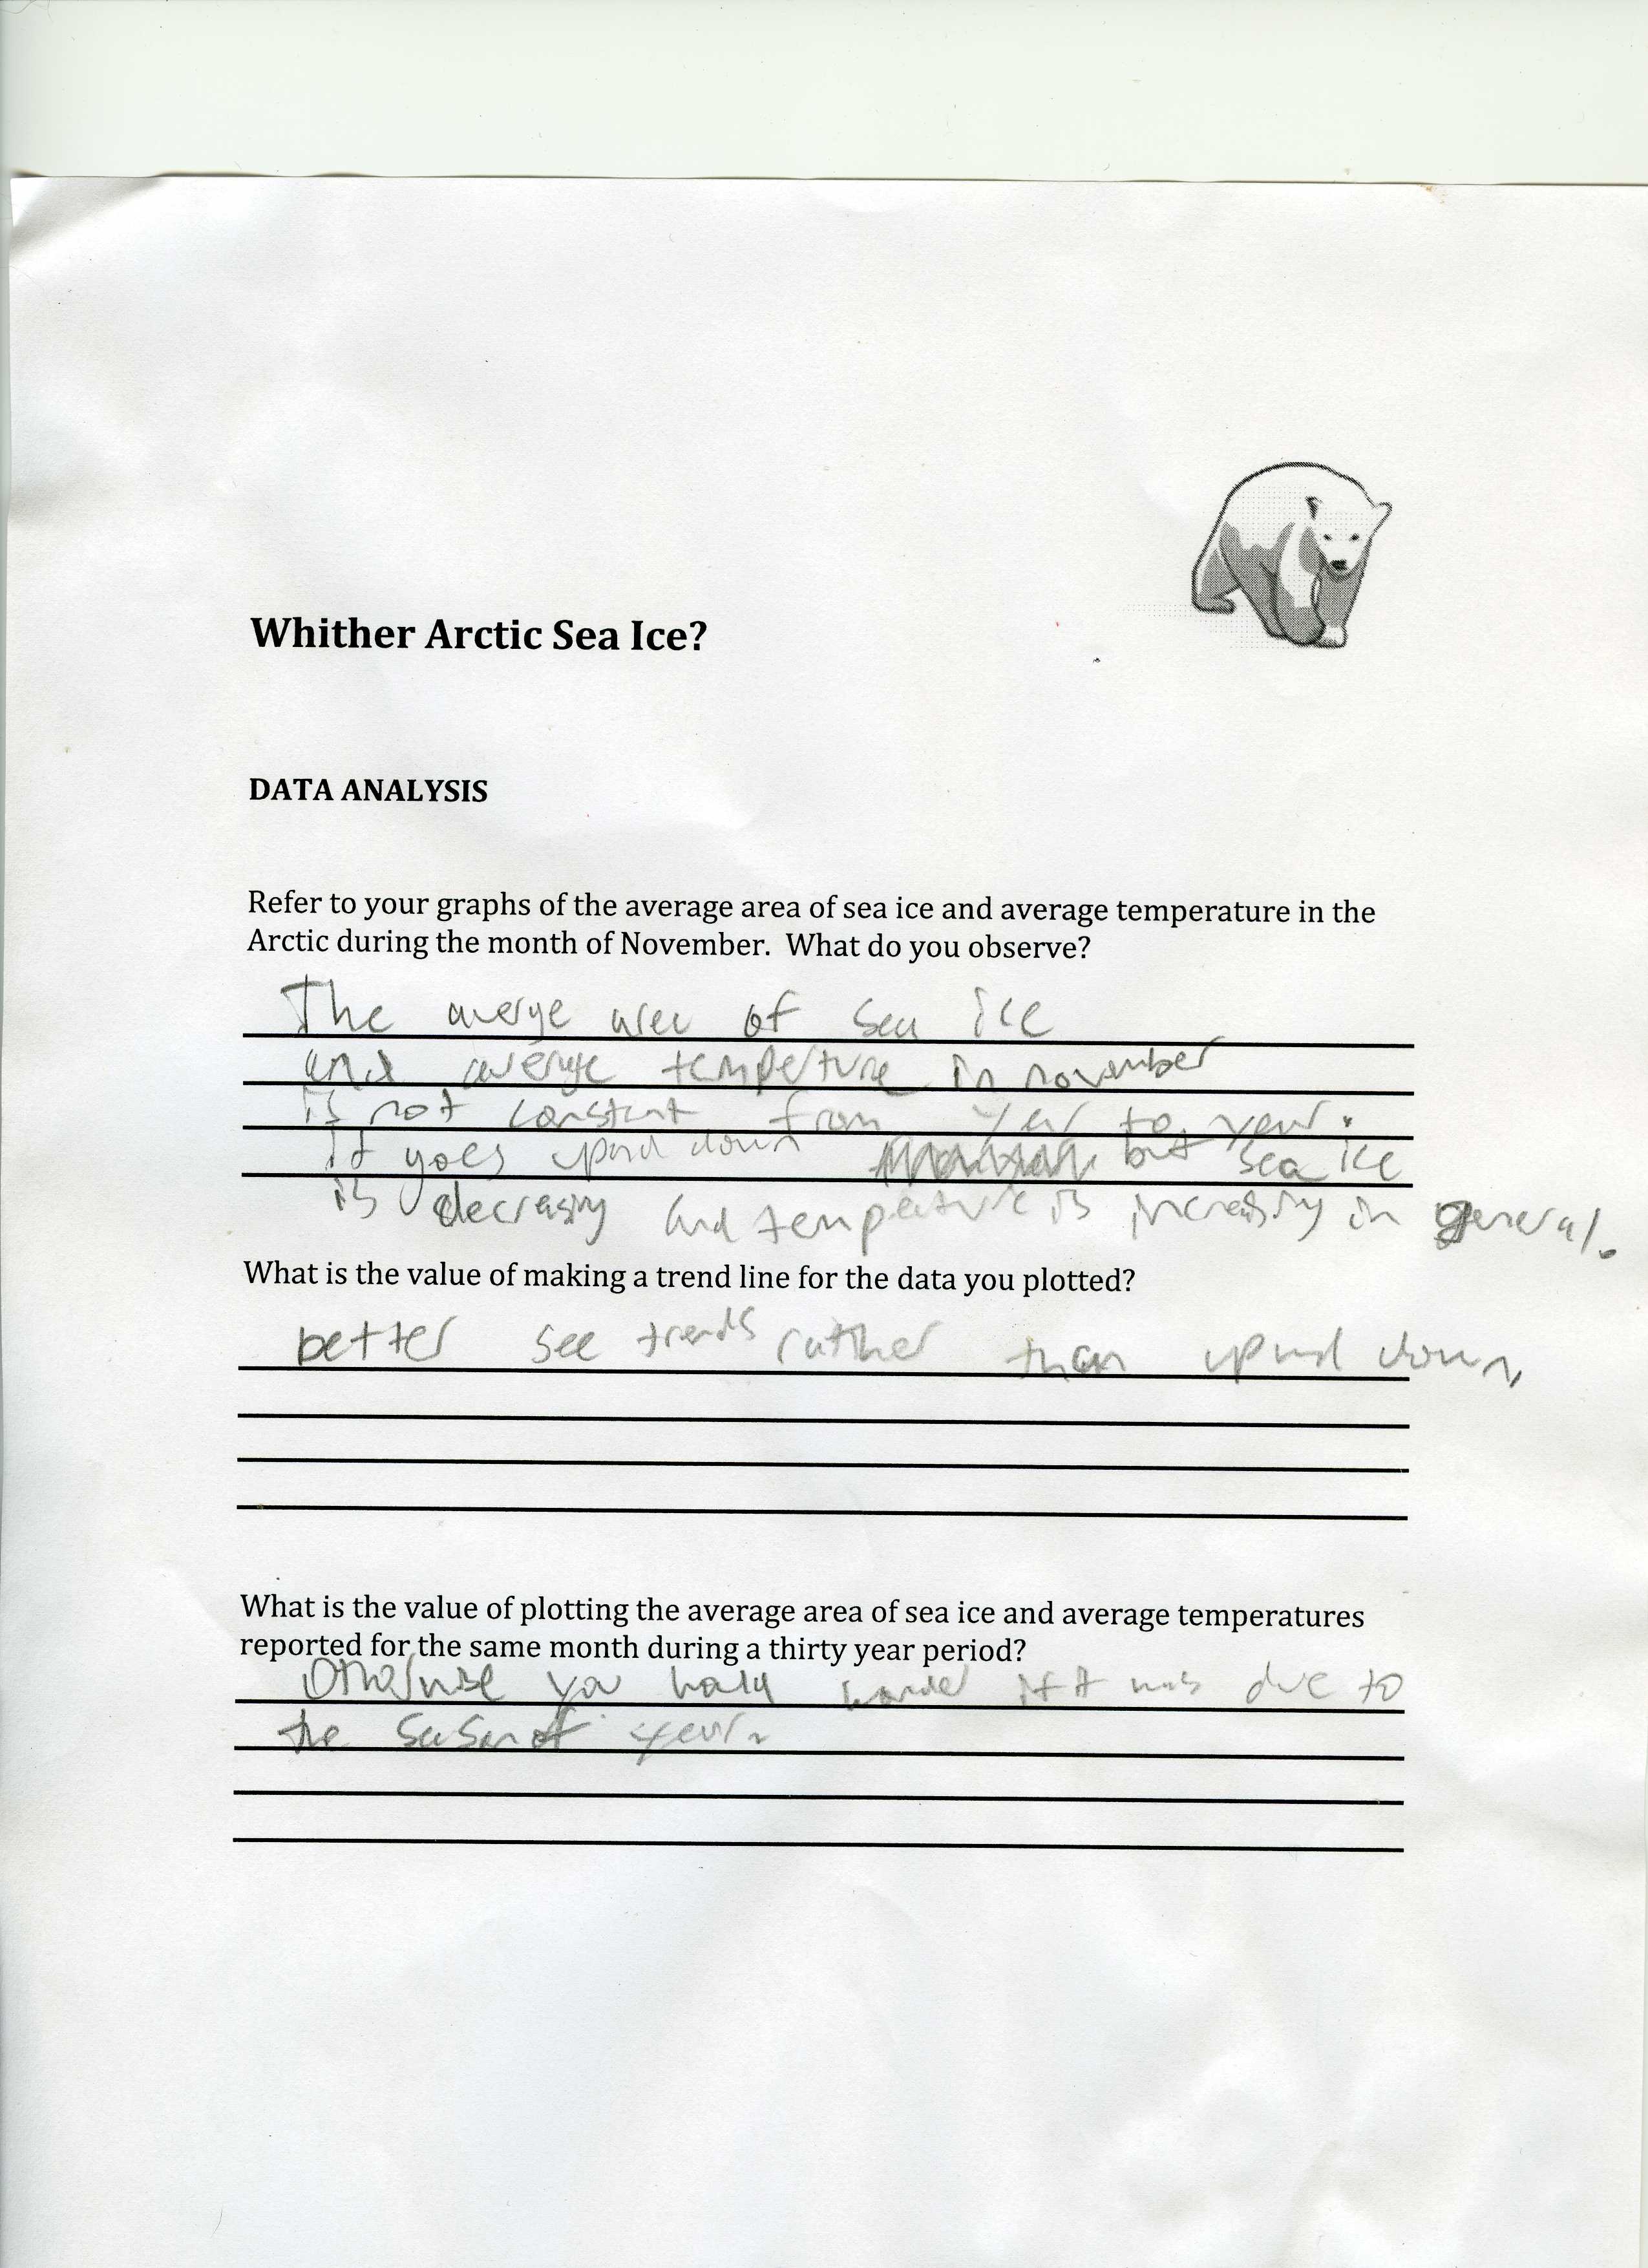 Whither Arctic Sea Ice?
DATA ANALYSIS
Refer to your graphs of the average area of sea ice and average temperature in the
Arctic during the month of November.  What do you observe?
The averge area of sea ice
and average tempeture in november
is not constant from year to year.
it goes up and down but sea ice
is decreasing and tempeture is increasing in general.
What is the value of making a trend line for the data you plotted?
better see trends rather than up and down,
What is the value of plotting the average area of sea ice and average temperatures
reported for the same month during a thirty year period?
Otherwise you if it was due to
the season of year.